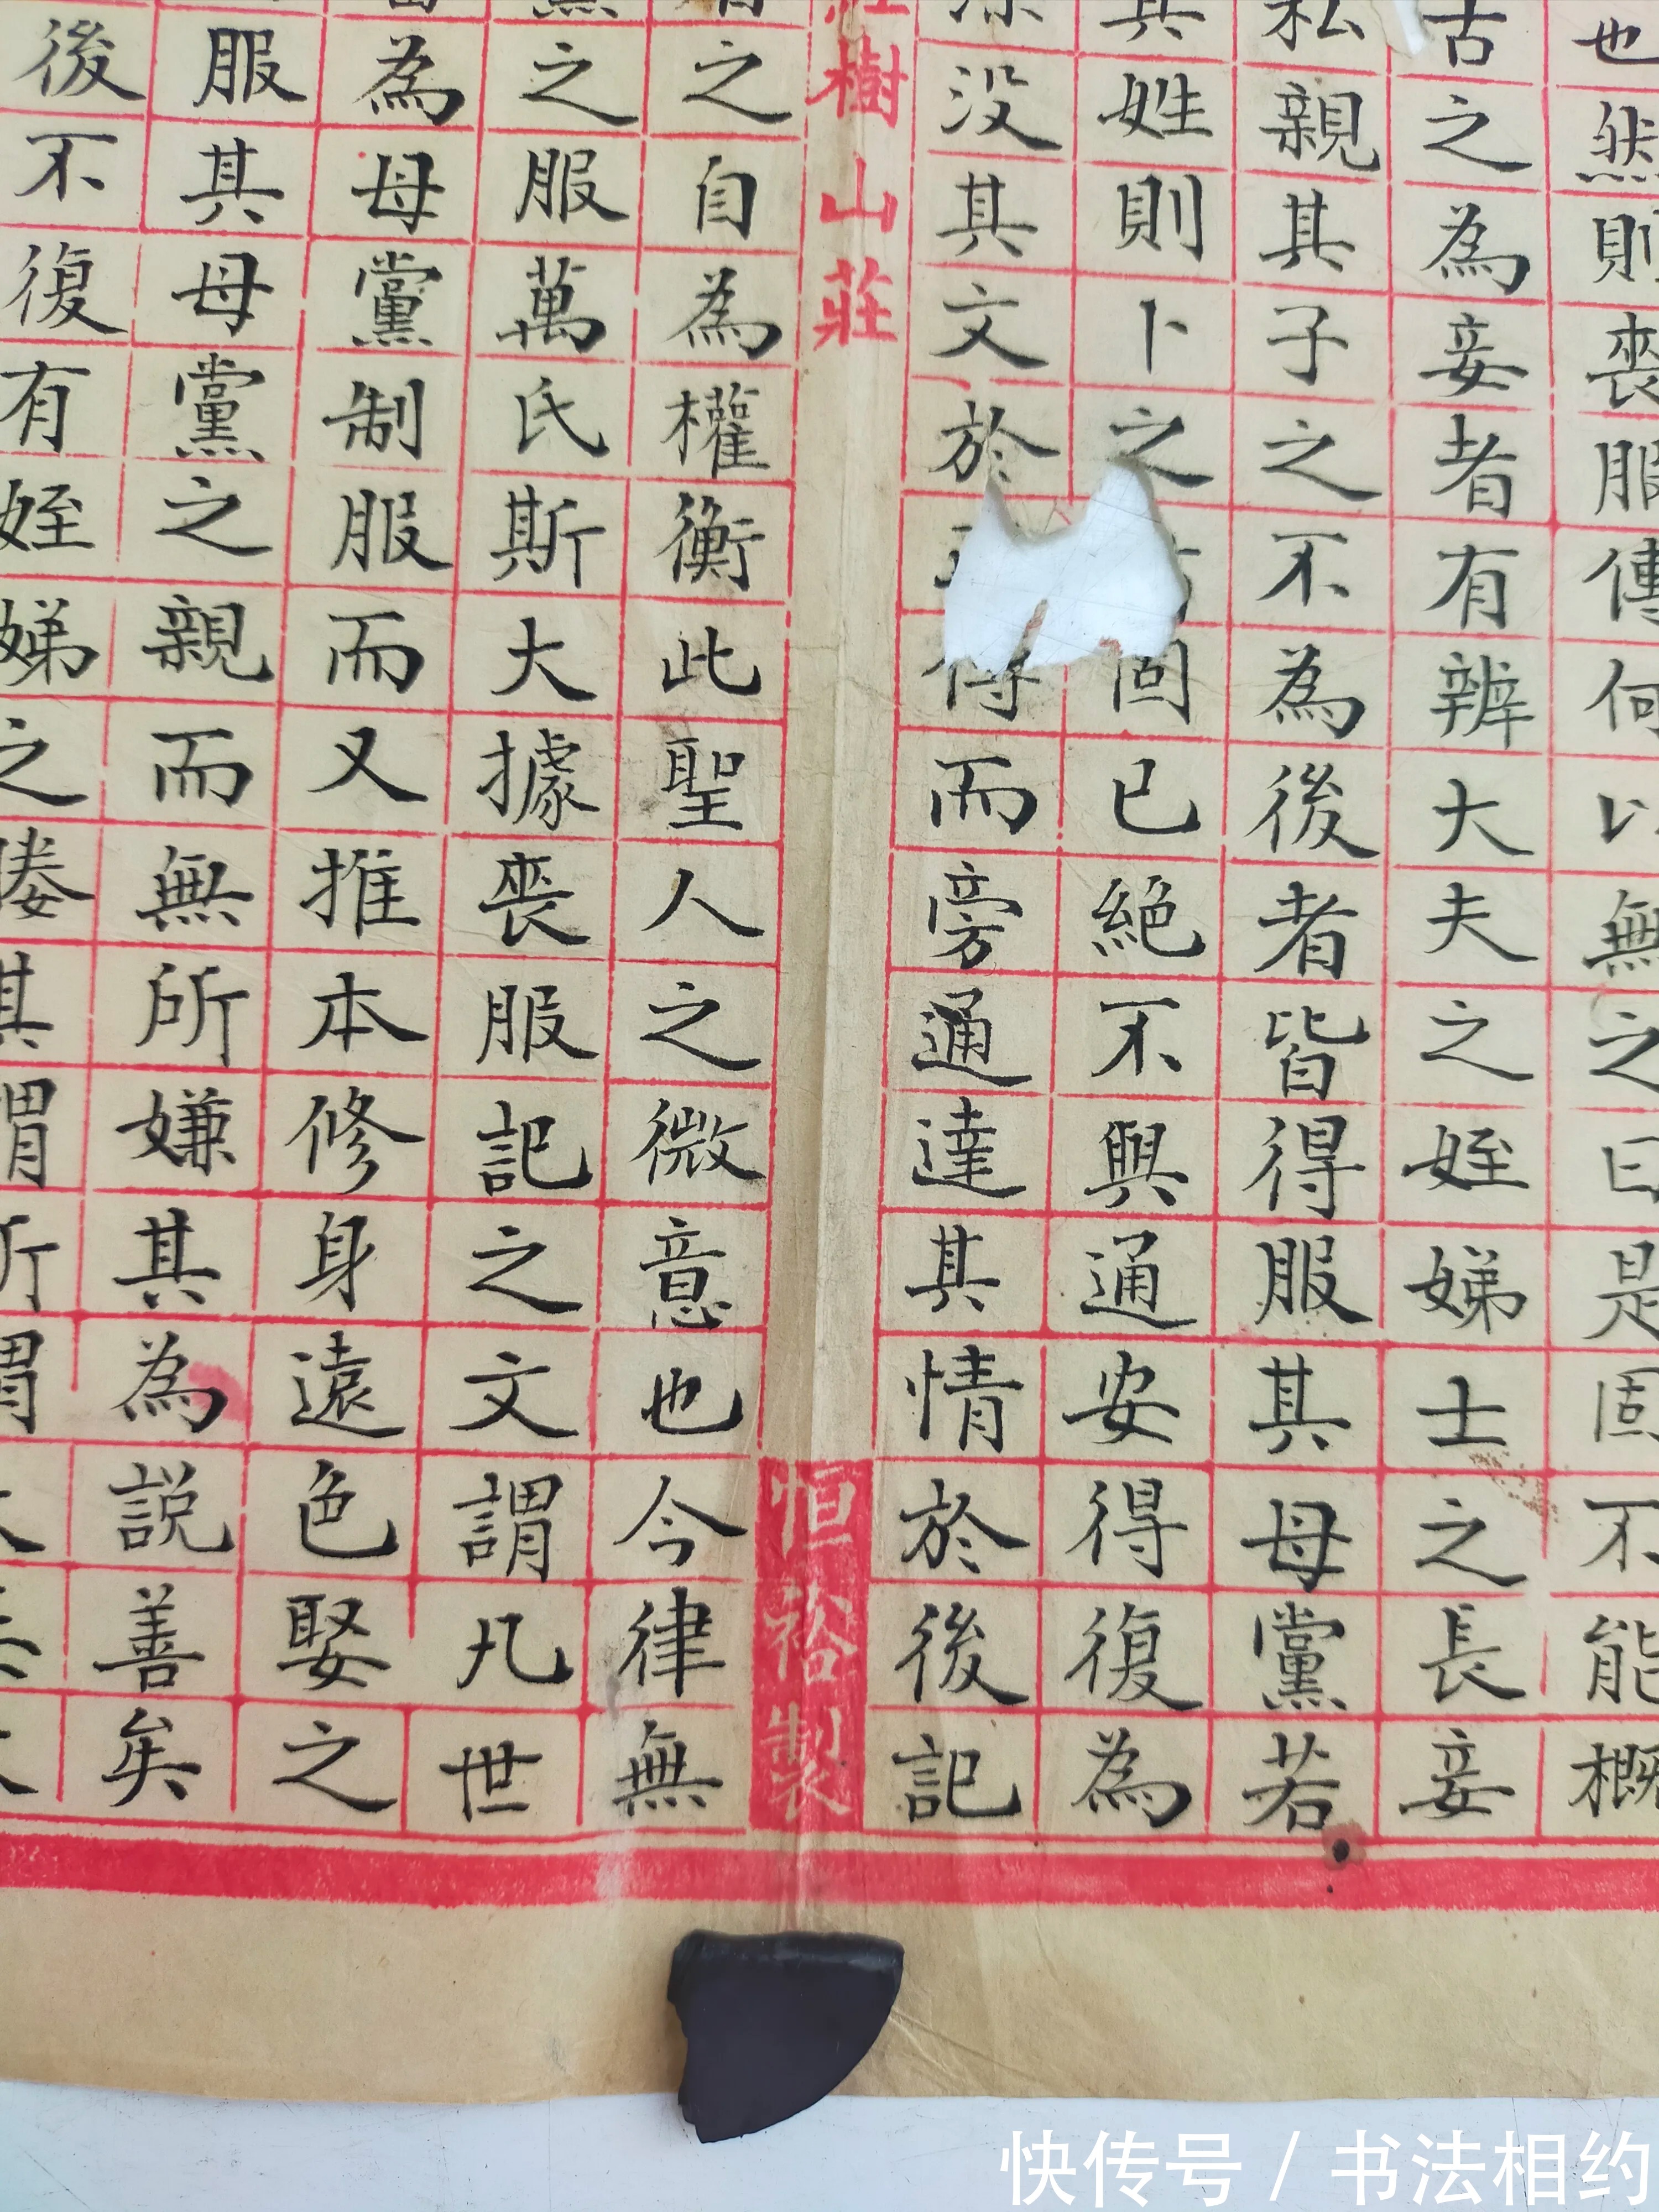 也然則喪服傳何以無之曰是固不能概
古之為妾者有辨大夫之姪娣士之長妾
私親其子之不為後者皆得服其母黨若
其姓則卜之 固已絕不與通安得復為
没其文於 得而旁通達其情於後記
紅樹山莊
恒裕製
之自為權衡此聖人之微意也今律無
之服萬氏斯大據喪服記之文謂凡世
為母黨制服而又推本修身遠色娶之
服其母黨之親而無所嫌其為說善矣
後不復有姪娣之媵其謂所謂
快传号 / 书法相约